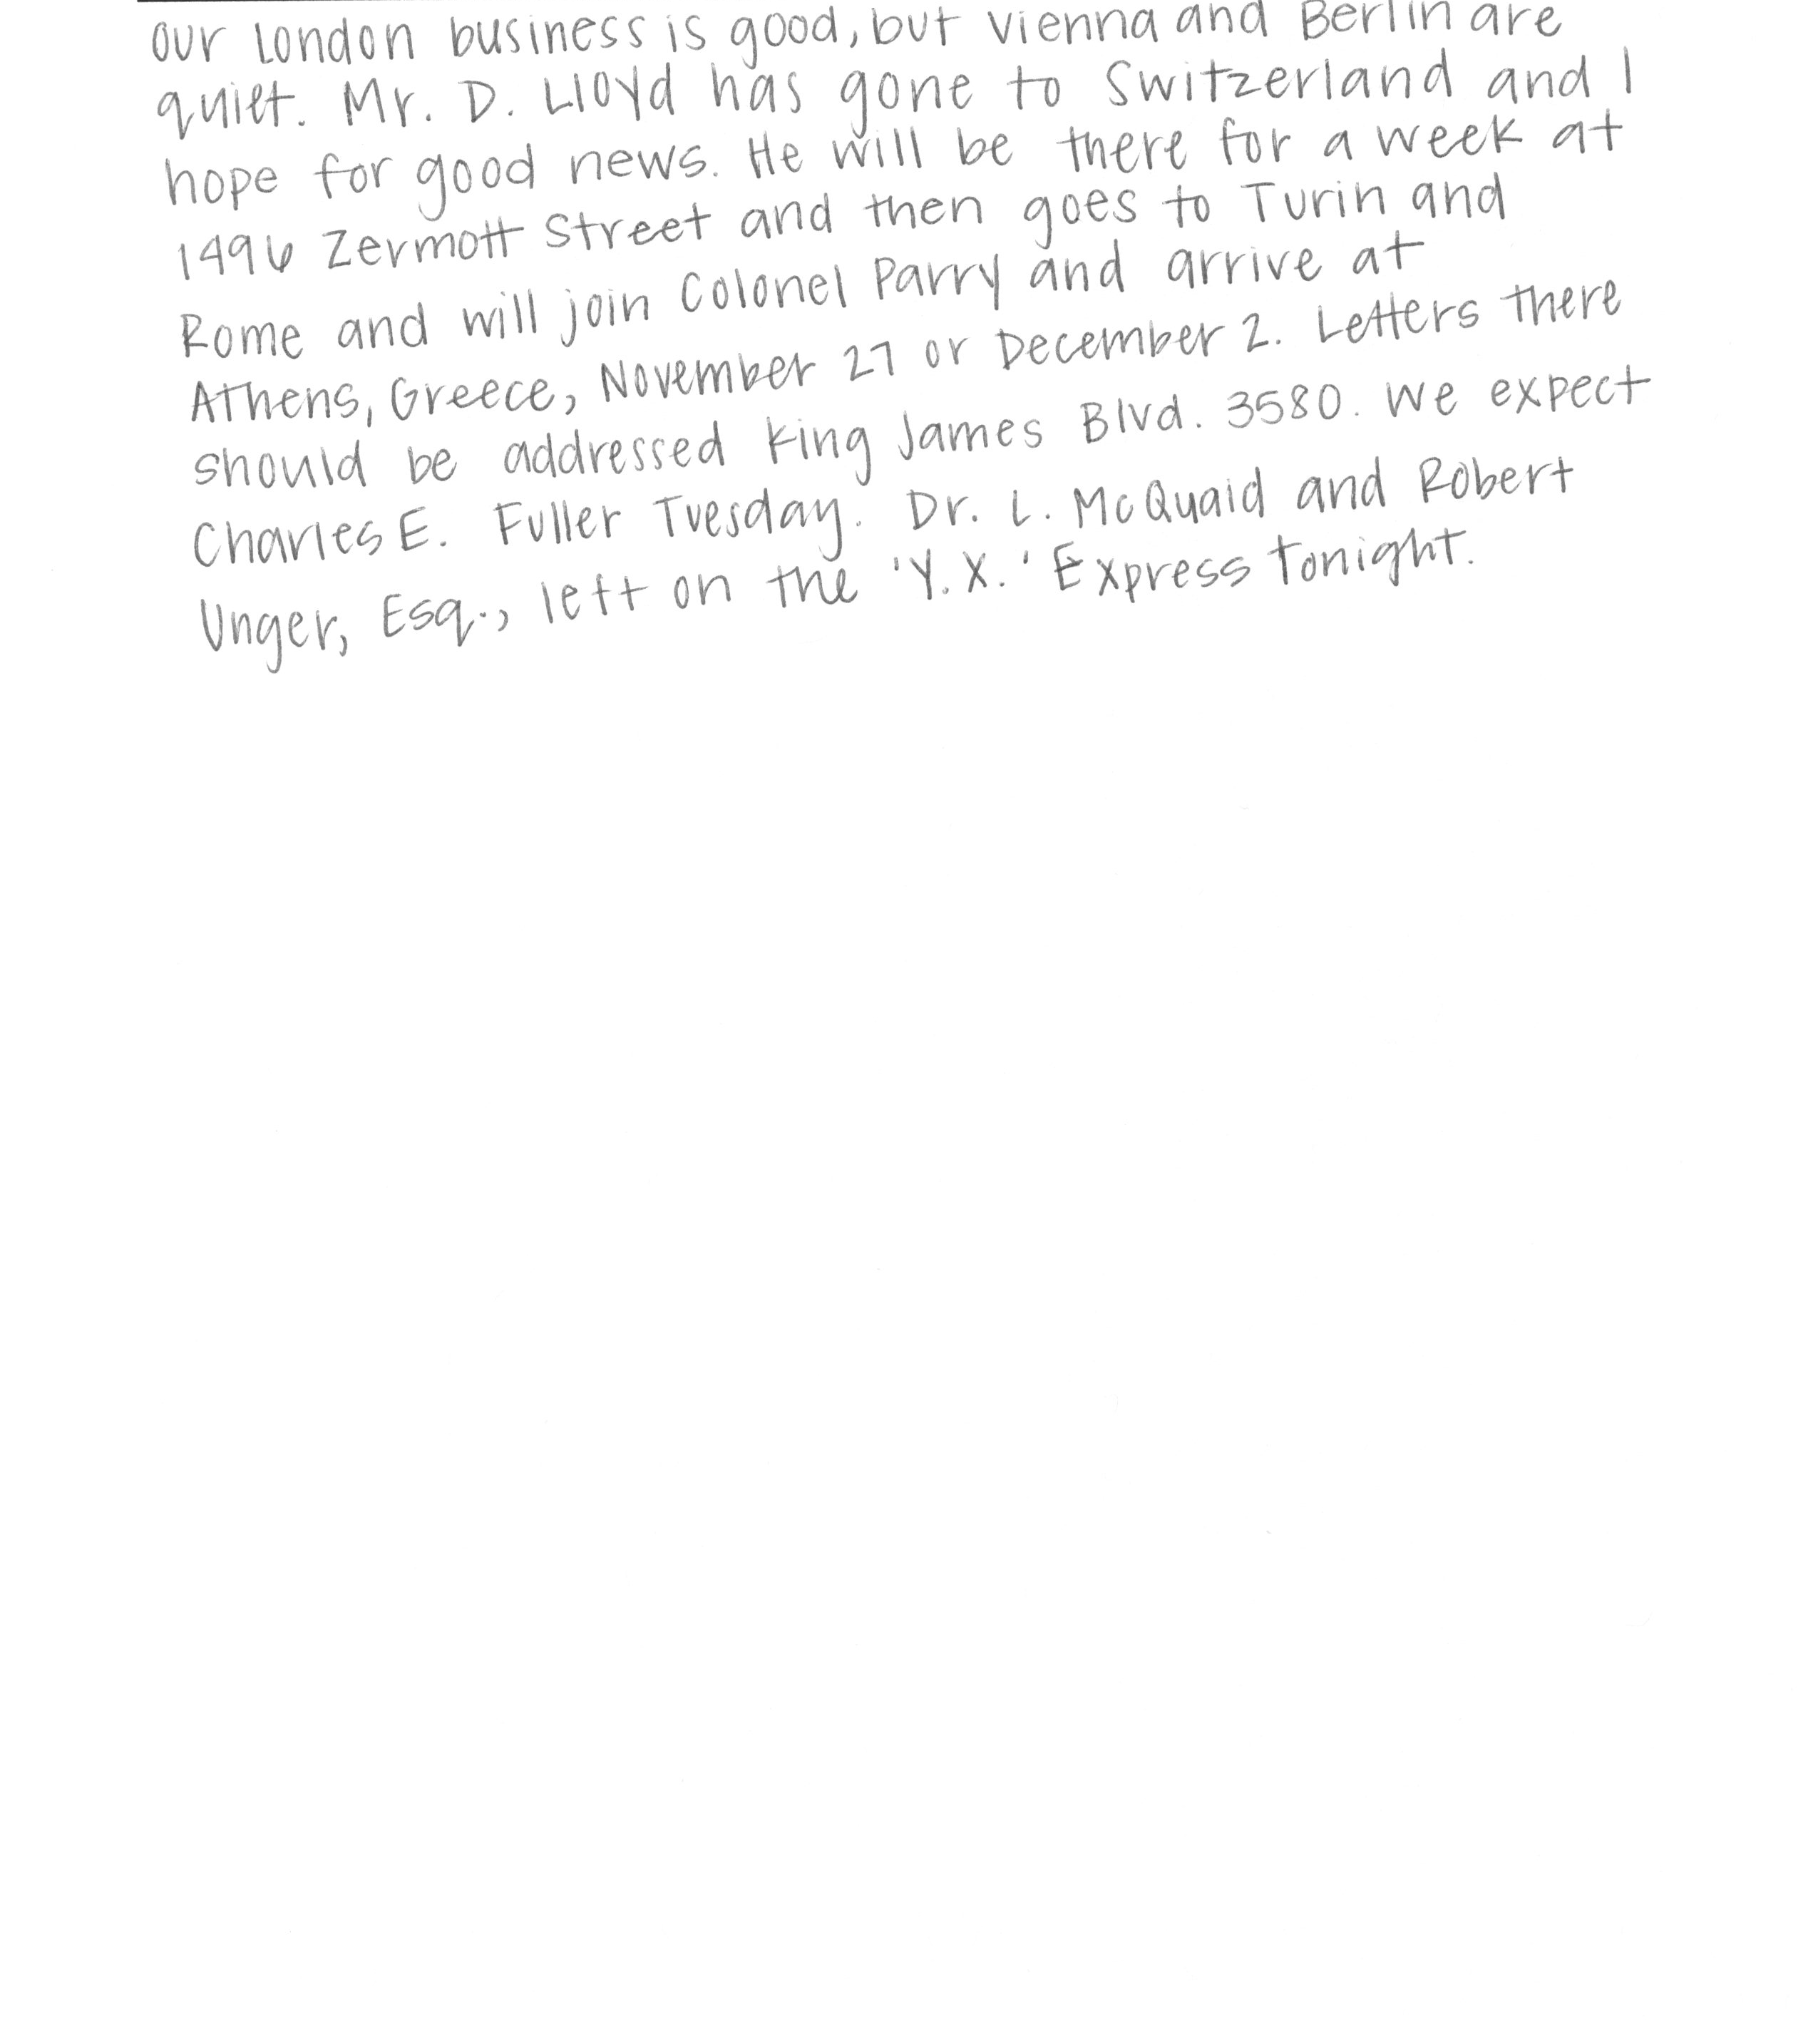 our London business is good, but Vienna and Berlin are
quiet. Mr. D. Lloyd has gone to Switzerland and I
hope for good news. He will be there for a week at
1496 Zermott Street and then goes to Turin and
Rome and will join Colonel Parry and arrive at
Athens, Greece, November 27 or December 2. Letters there
should be addressed King James Blvd. 3580. We expect
Charles E. Fuller Tuesday. Dr. L. McQuaid and Robert
Unger, Esq., left on the 'Y.X.' Express tonight.